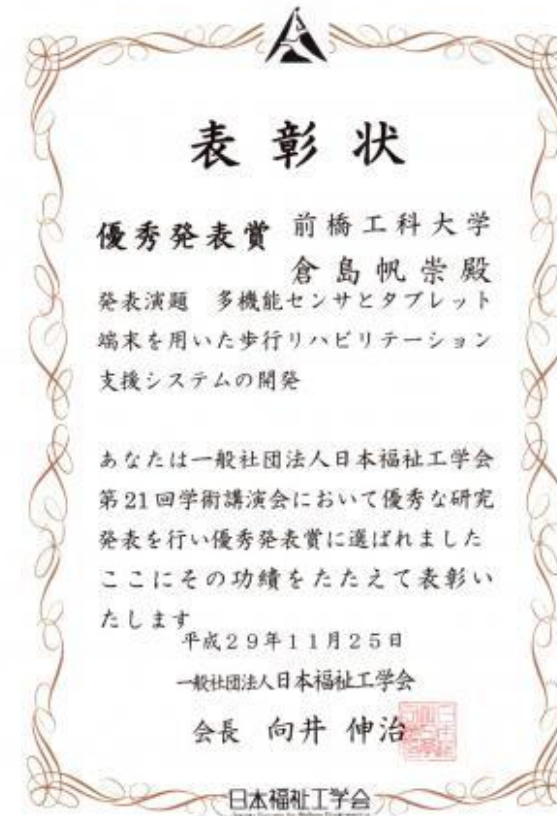 表彰状
優秀発表賞 前橋工科大学
倉島帆崇殿
発表演題 多機能センサとタブレット
端末を用いた歩行リハビリテーション
支援システムの開発
あなたは一般社団法人日本福祉工学会
第21回学術講演会において優秀な研究
発表を行い優秀発表賞に選ばれました
ここにその功績をたたえて表彰い
たします
平成29年11月25日
一般社団法人日本福祉工学会
会長 向井 伸治
日本福祉工学会